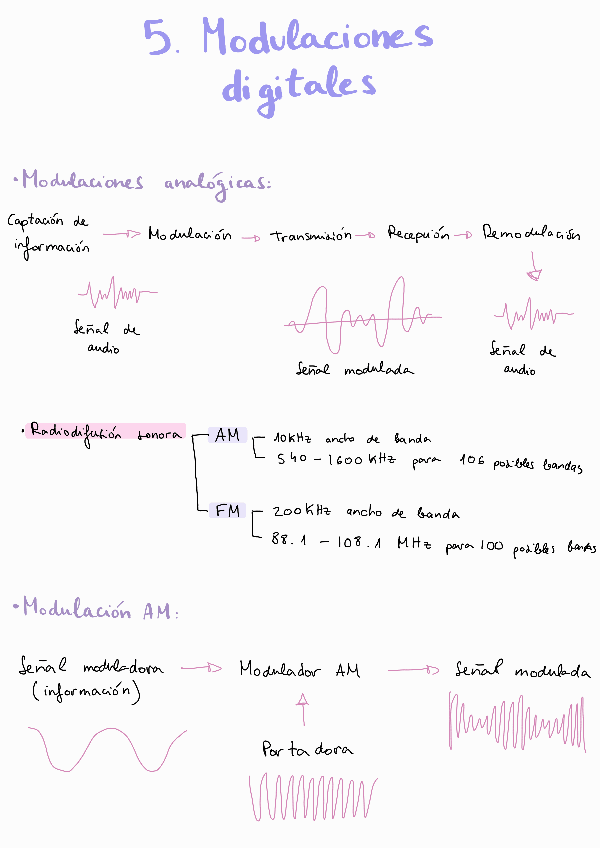 5. Modulaciones
digitales
· Modulaciones analógicas:
Captación de
información
Modulación
Transmisión
Recepción
Demodulación
Señal de
audio
Señal modulada
Señal de
audio
· Radiodifusión sonora
AM
10KHz ancho de banda
540 - 1600 KHz para 106 posibles bandas
FM
200KHz ancho de banda
88.1 - 108.1 MHz para 100 posibles bandas
· Modulación AM:
Señal moduladora
(información)
Modulador AM
Señal modulada
Portadora